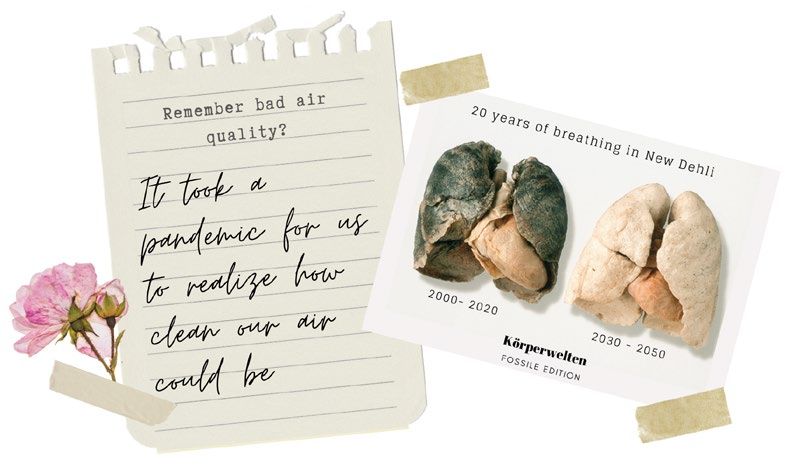 Remember bad air
quality?
It took a
pandemic for us
to realize how
clean our air
could be
20 years of breathing in New Dehli
2000- 2020
2030 - 2050
Körperwelten
FOSSILE EDITION